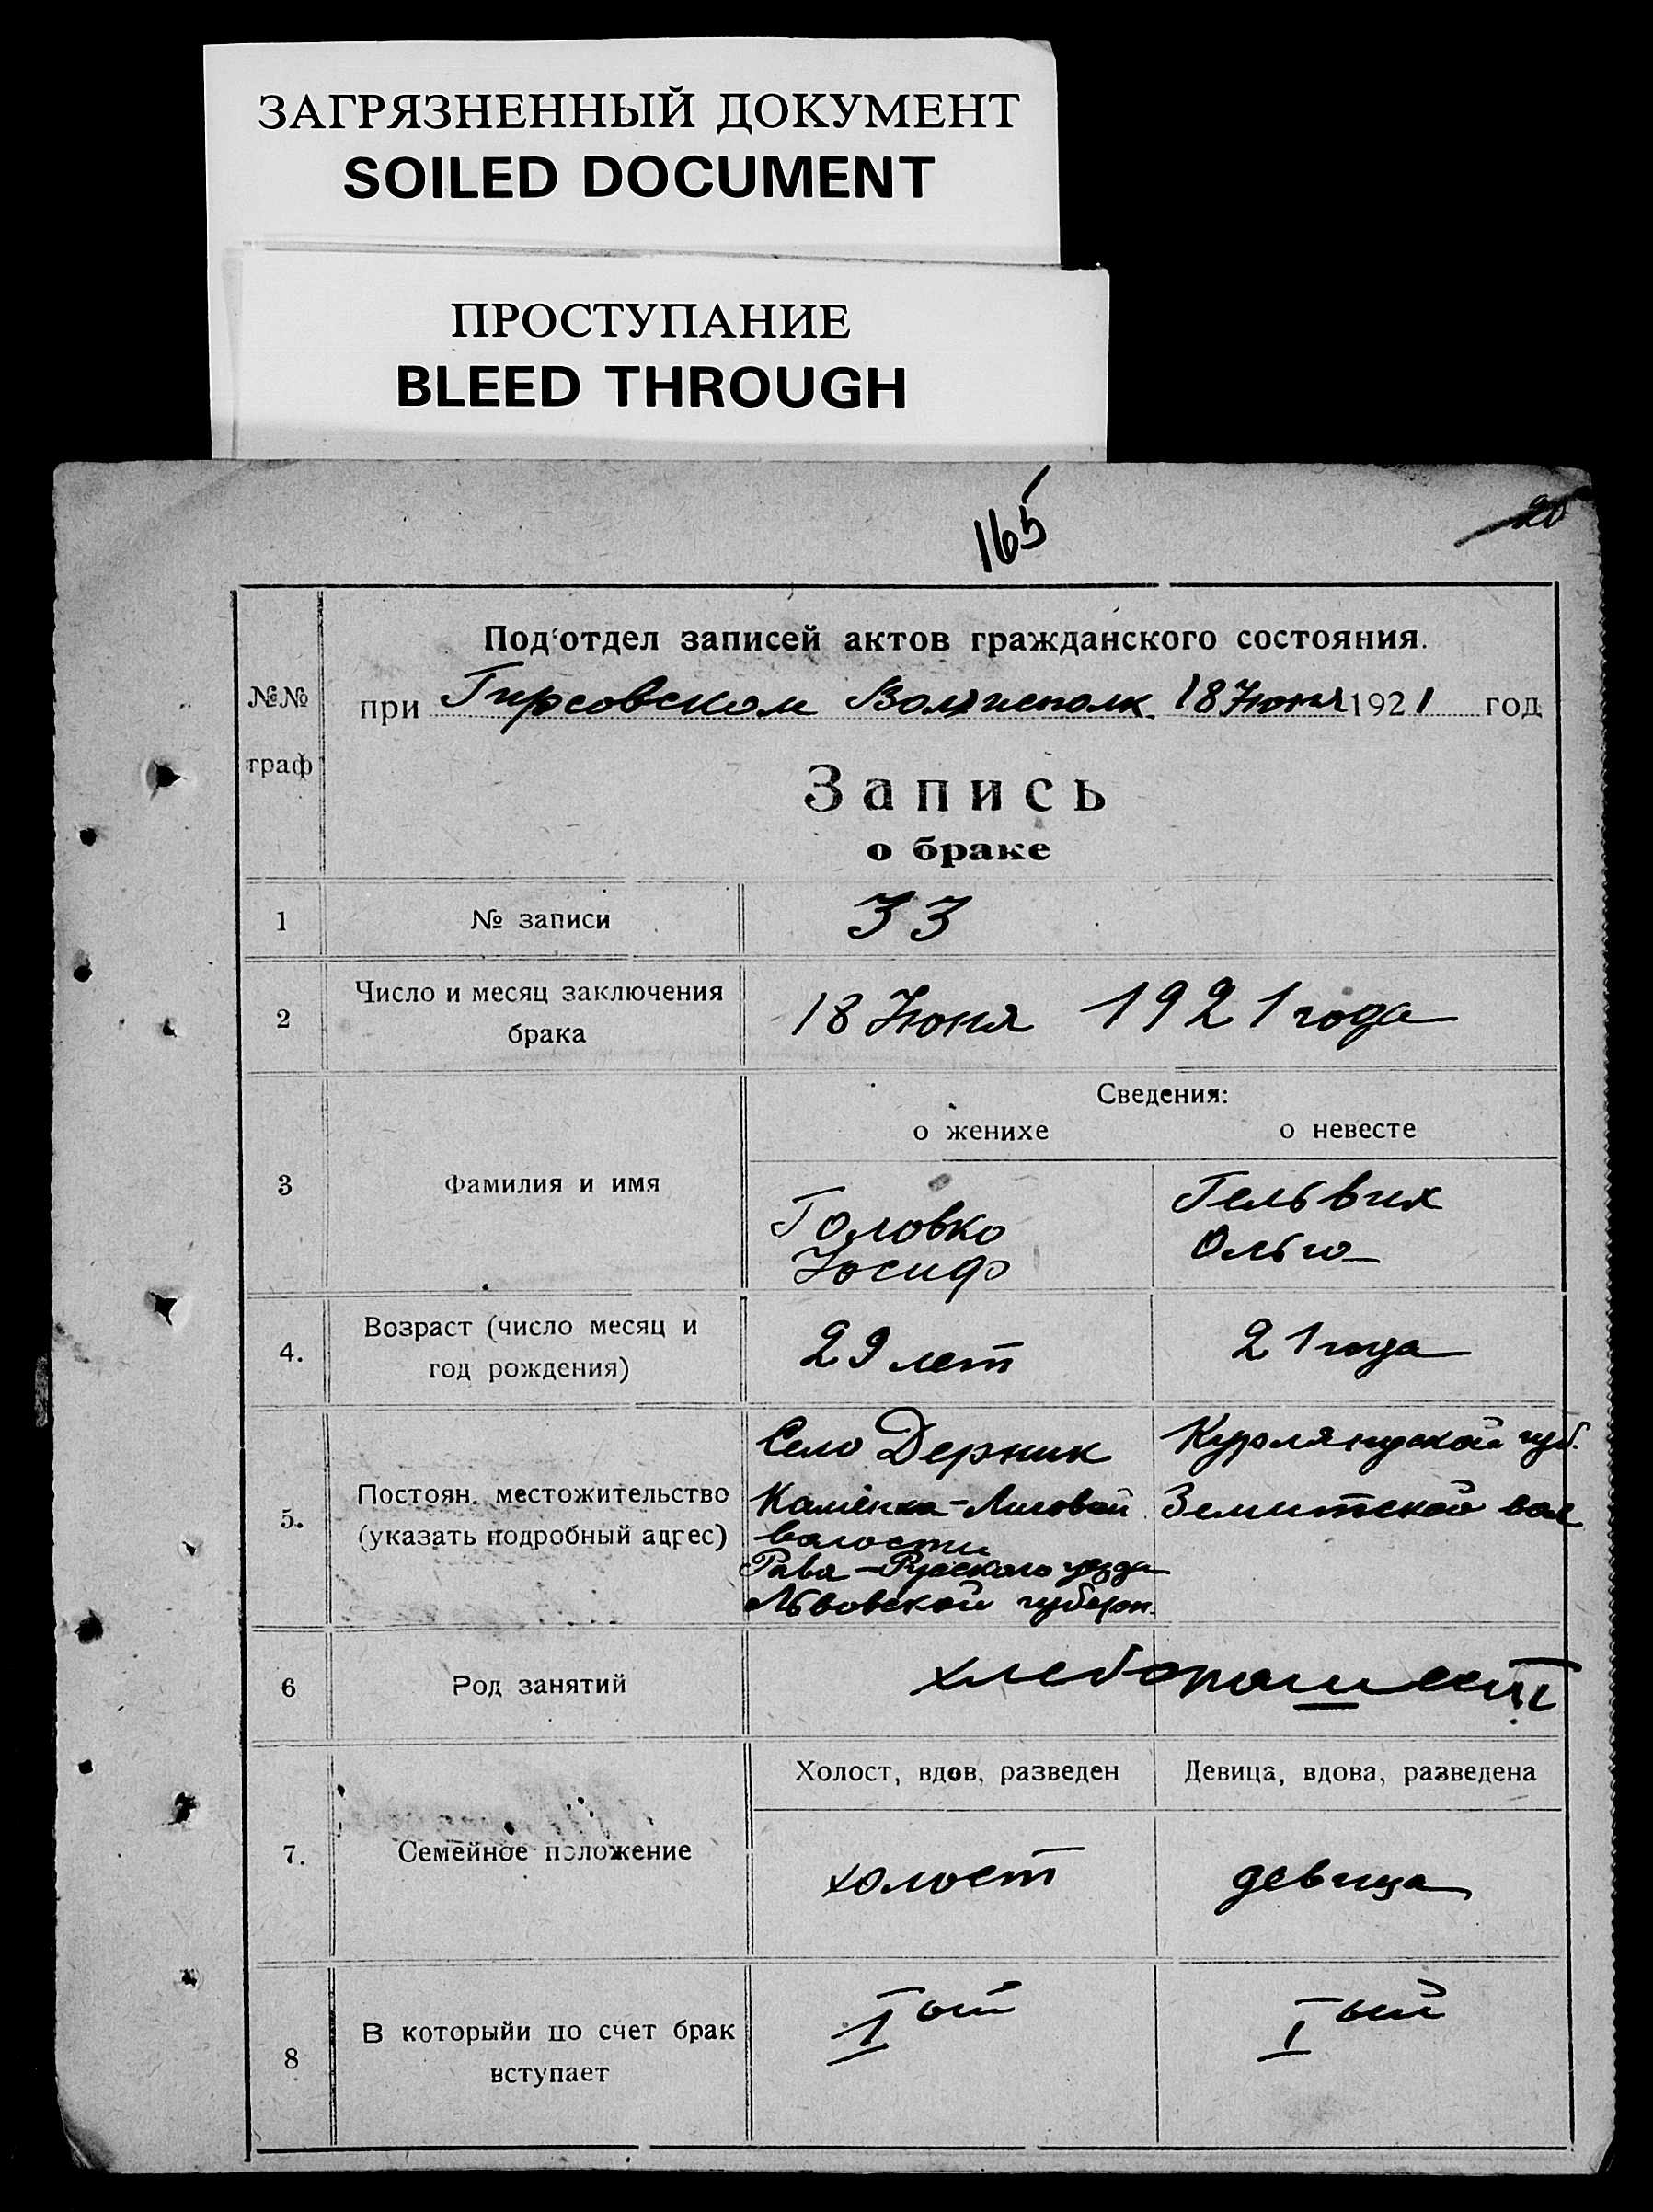 ЗАГРЯЗНЕННЫЙ ДОКУМЕНТ
SOILED DOCUMENT
ПРОСТУПАНИЕ
BLEED THROUGH
165
20
Под'отдел записей актов гражданского состояния.
№№ граф
при Гирсовском Волисполк. 18 Июня 1921 год
Запись
о браке
1 № записи 33
2 Число и месяц заключения брака 18 Июня 1921 года
Сведения:
о женихе о невесте
3 Фамилия и имя
Головко Гельвих
Иосиф Ольга
4. Возраст (число месяц и год рождения) 29 лет 21 года
5. Постоян. местожительство (указать подробный адрес)
Село Дерник Курляндской губ.
Каменка-Лисовой Земитской вол
волости
Рава-Русского уезда
Львовской губерн.
6 Род занятий хлебопашест
Холост, вдов, разведен Девица, вдова, разведена
7. Семейное положение холост девица
8 В которыйи по счет брак вступает I ый I ый